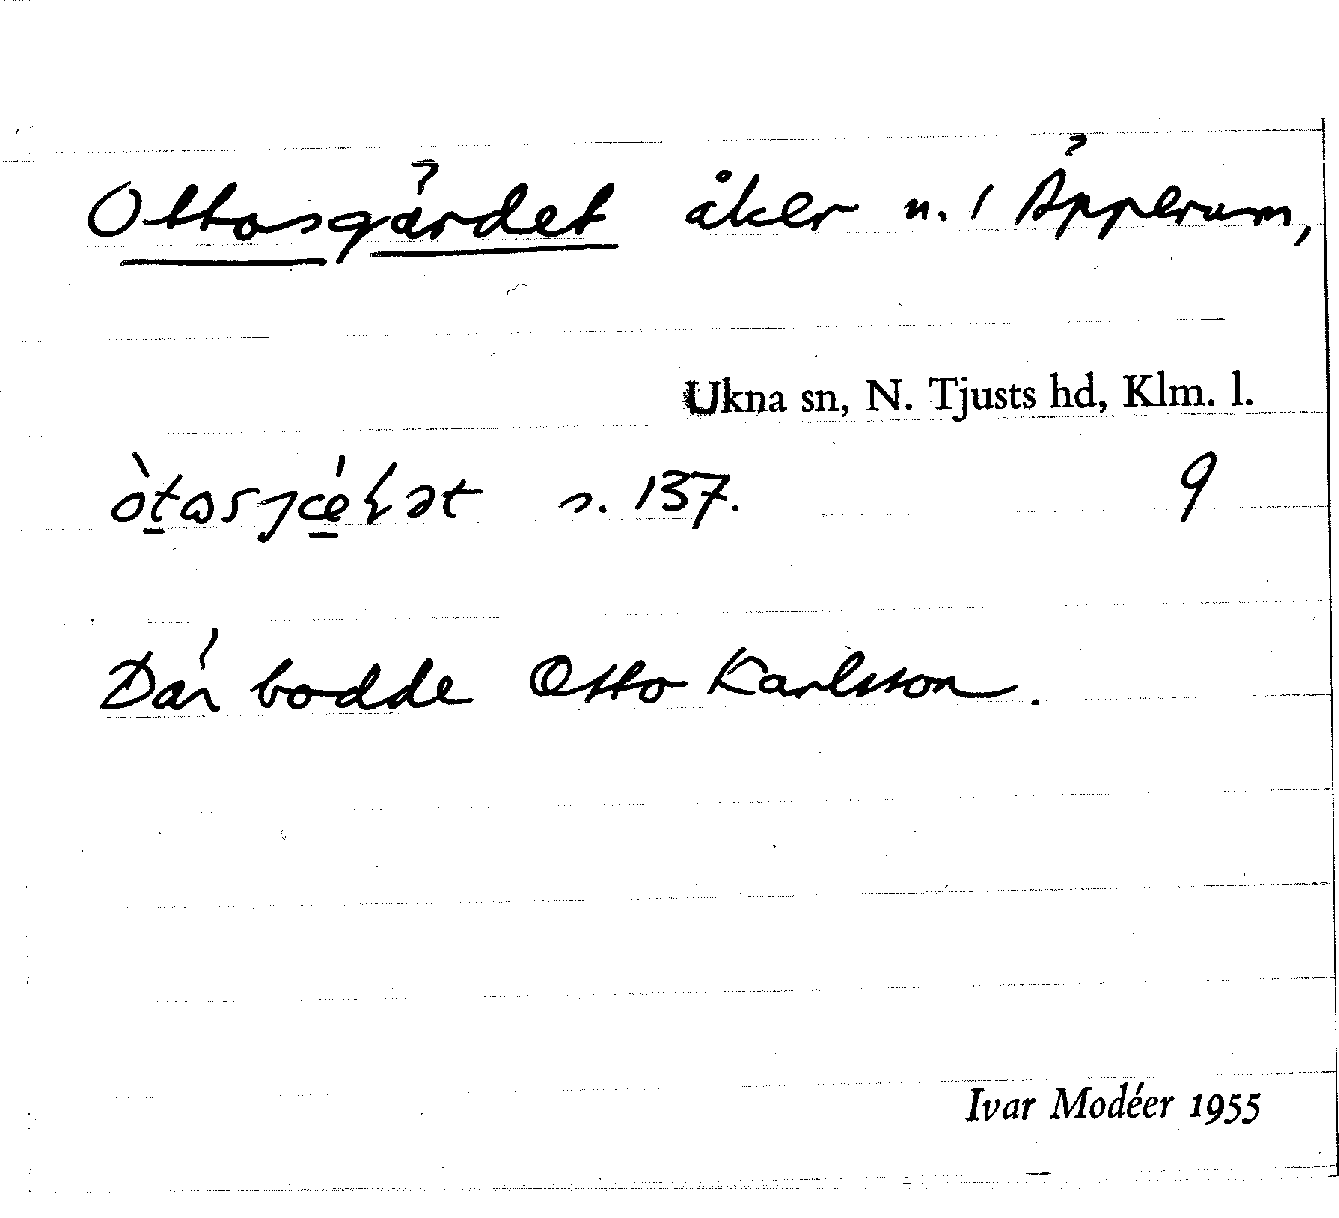 Ottosgärdet åker n. 1 Äpplerum,
Ukna sn, N. Tjusts hd, Klm. l.
s. 137. 9
Där bodde Otto Karlsson.
Ivar Modéer 1955